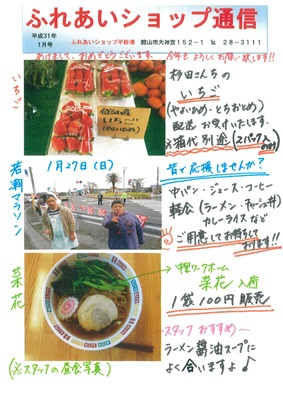 ふれあいショップ通信
平成31年
1月号
ふれあいショップ平砂浦 館山市大神宮152-1 ℡ 28-3111
あけまして、おめでとうございます。 今年もよろしくお願い致します!!
いちご
杉田さんちの
いちご
(やよいひめ・とちおとめ)
配送 お受けいたします。
※箱代別途 (2パック入のみ)
若潮マラソン
1月27日(日)
皆で応援しませんか?
中パン・ジュース・コーヒー
軽食(ラーメン・チャーシュー丼
カレーライスなど
ご用意してお待ちして
おります!!
菜花
中里ワークホーム
菜花 入荷
1袋100円 販売
スタッフ おすすめ〜
ラーメン醤油スープに
よく合いますよ♪
(※スタッフの昼食写真)